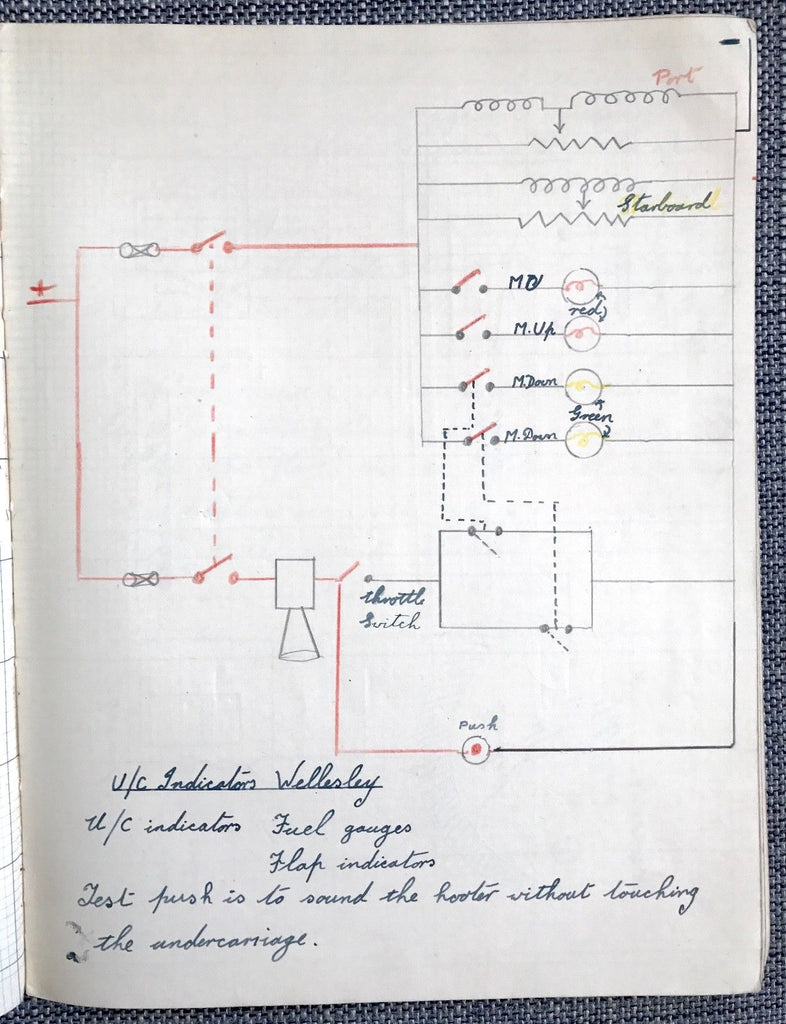 Port
Starboard
+
M.Up
red
M.Up
M.Down
Green
M.Down
throttle
Switch
Push
U/C Indicators Wellesley
U/C indicators Fuel gauges
Flap indicators
Test push is to sound the hooter without touching
the undercarriage.